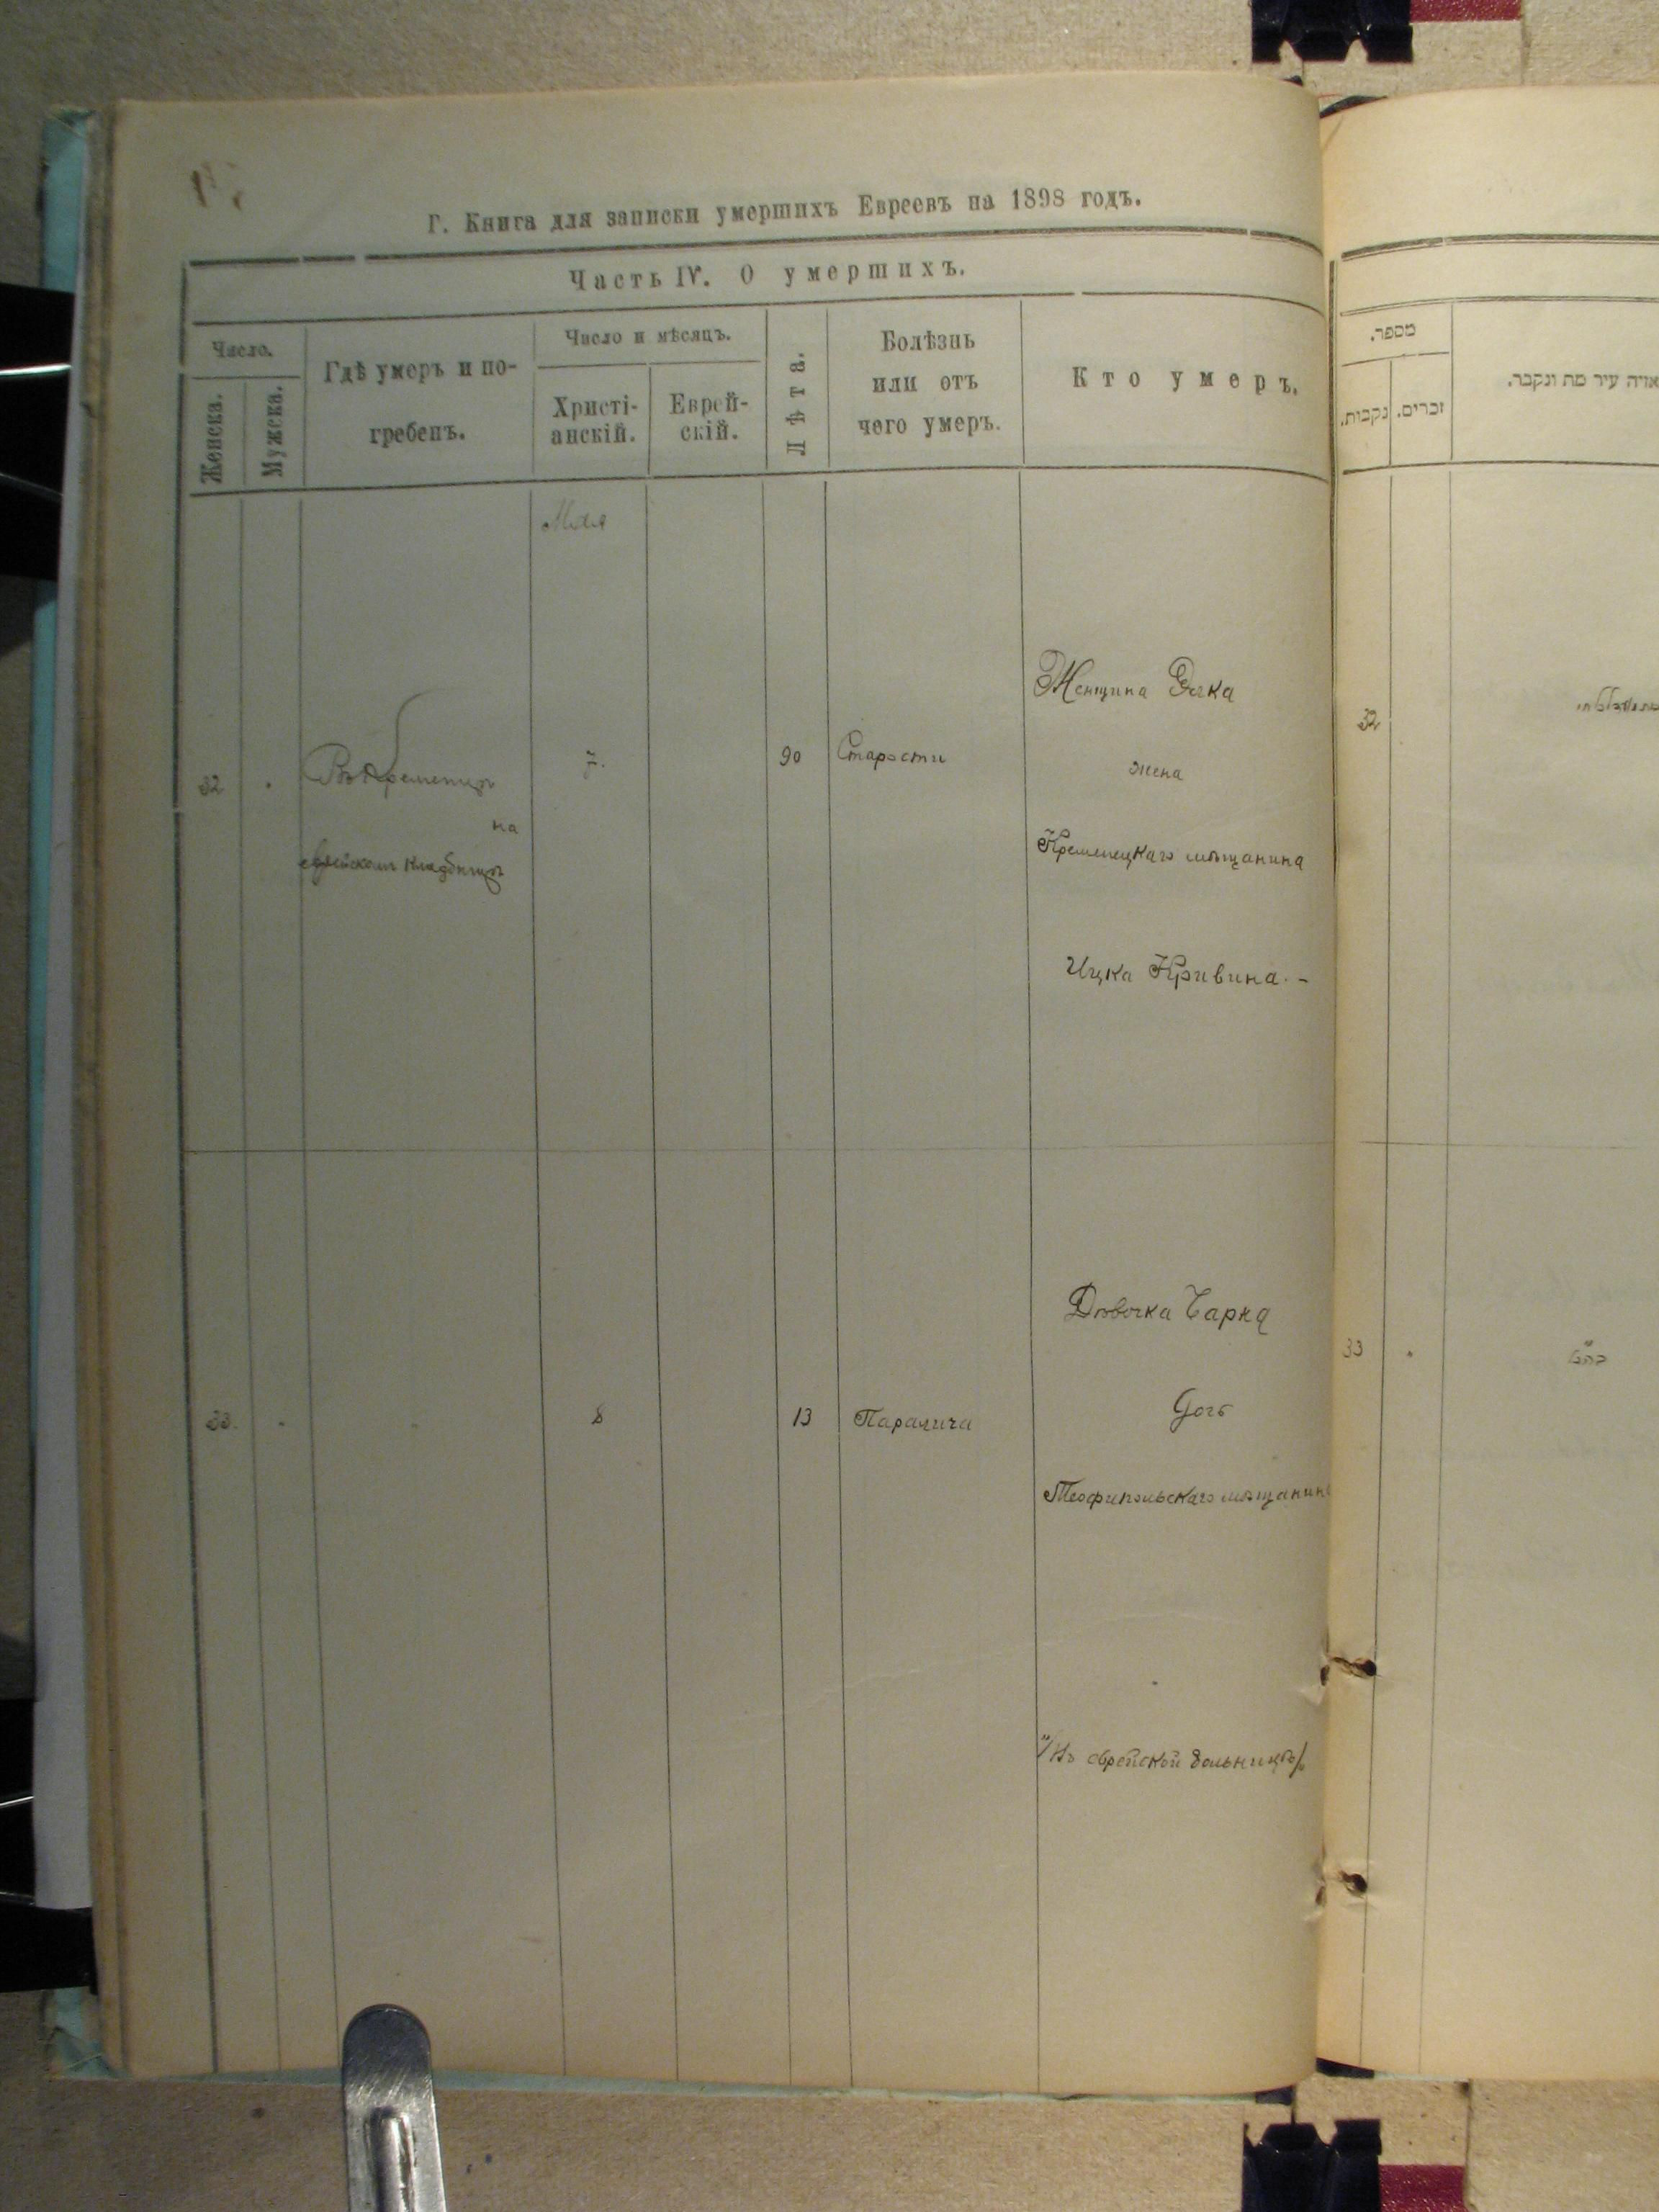 Г. Книга для записки умершихъ Евреевъ на 1898 годъ.
Часть IV. О умершихъ.
Число.
Женска.
Мужска.
Гдѣ умеръ и по-
гребенъ.
Число и мѣсяцъ.
Христі-
анскій.
Еврей-
скій.
Лѣта.
Болѣзнь
или отъ
чего умеръ.
Кто умеръ.
Мая
32
Въ Кременцѣ
на
еврейскомъ кладбищѣ
7.
90
Старости
Женщина
жена
Кременецкаго мѣщанина
Ицка Кривина.-
33.
8
13
Паралича
Дѣвочка Чарна
Дочь
Теофипольскаго мѣщанина
"/Въ еврейской больницѣ/"
מספר.
נקבות.
זכרים.
עיר מת ונקבר.
32
33